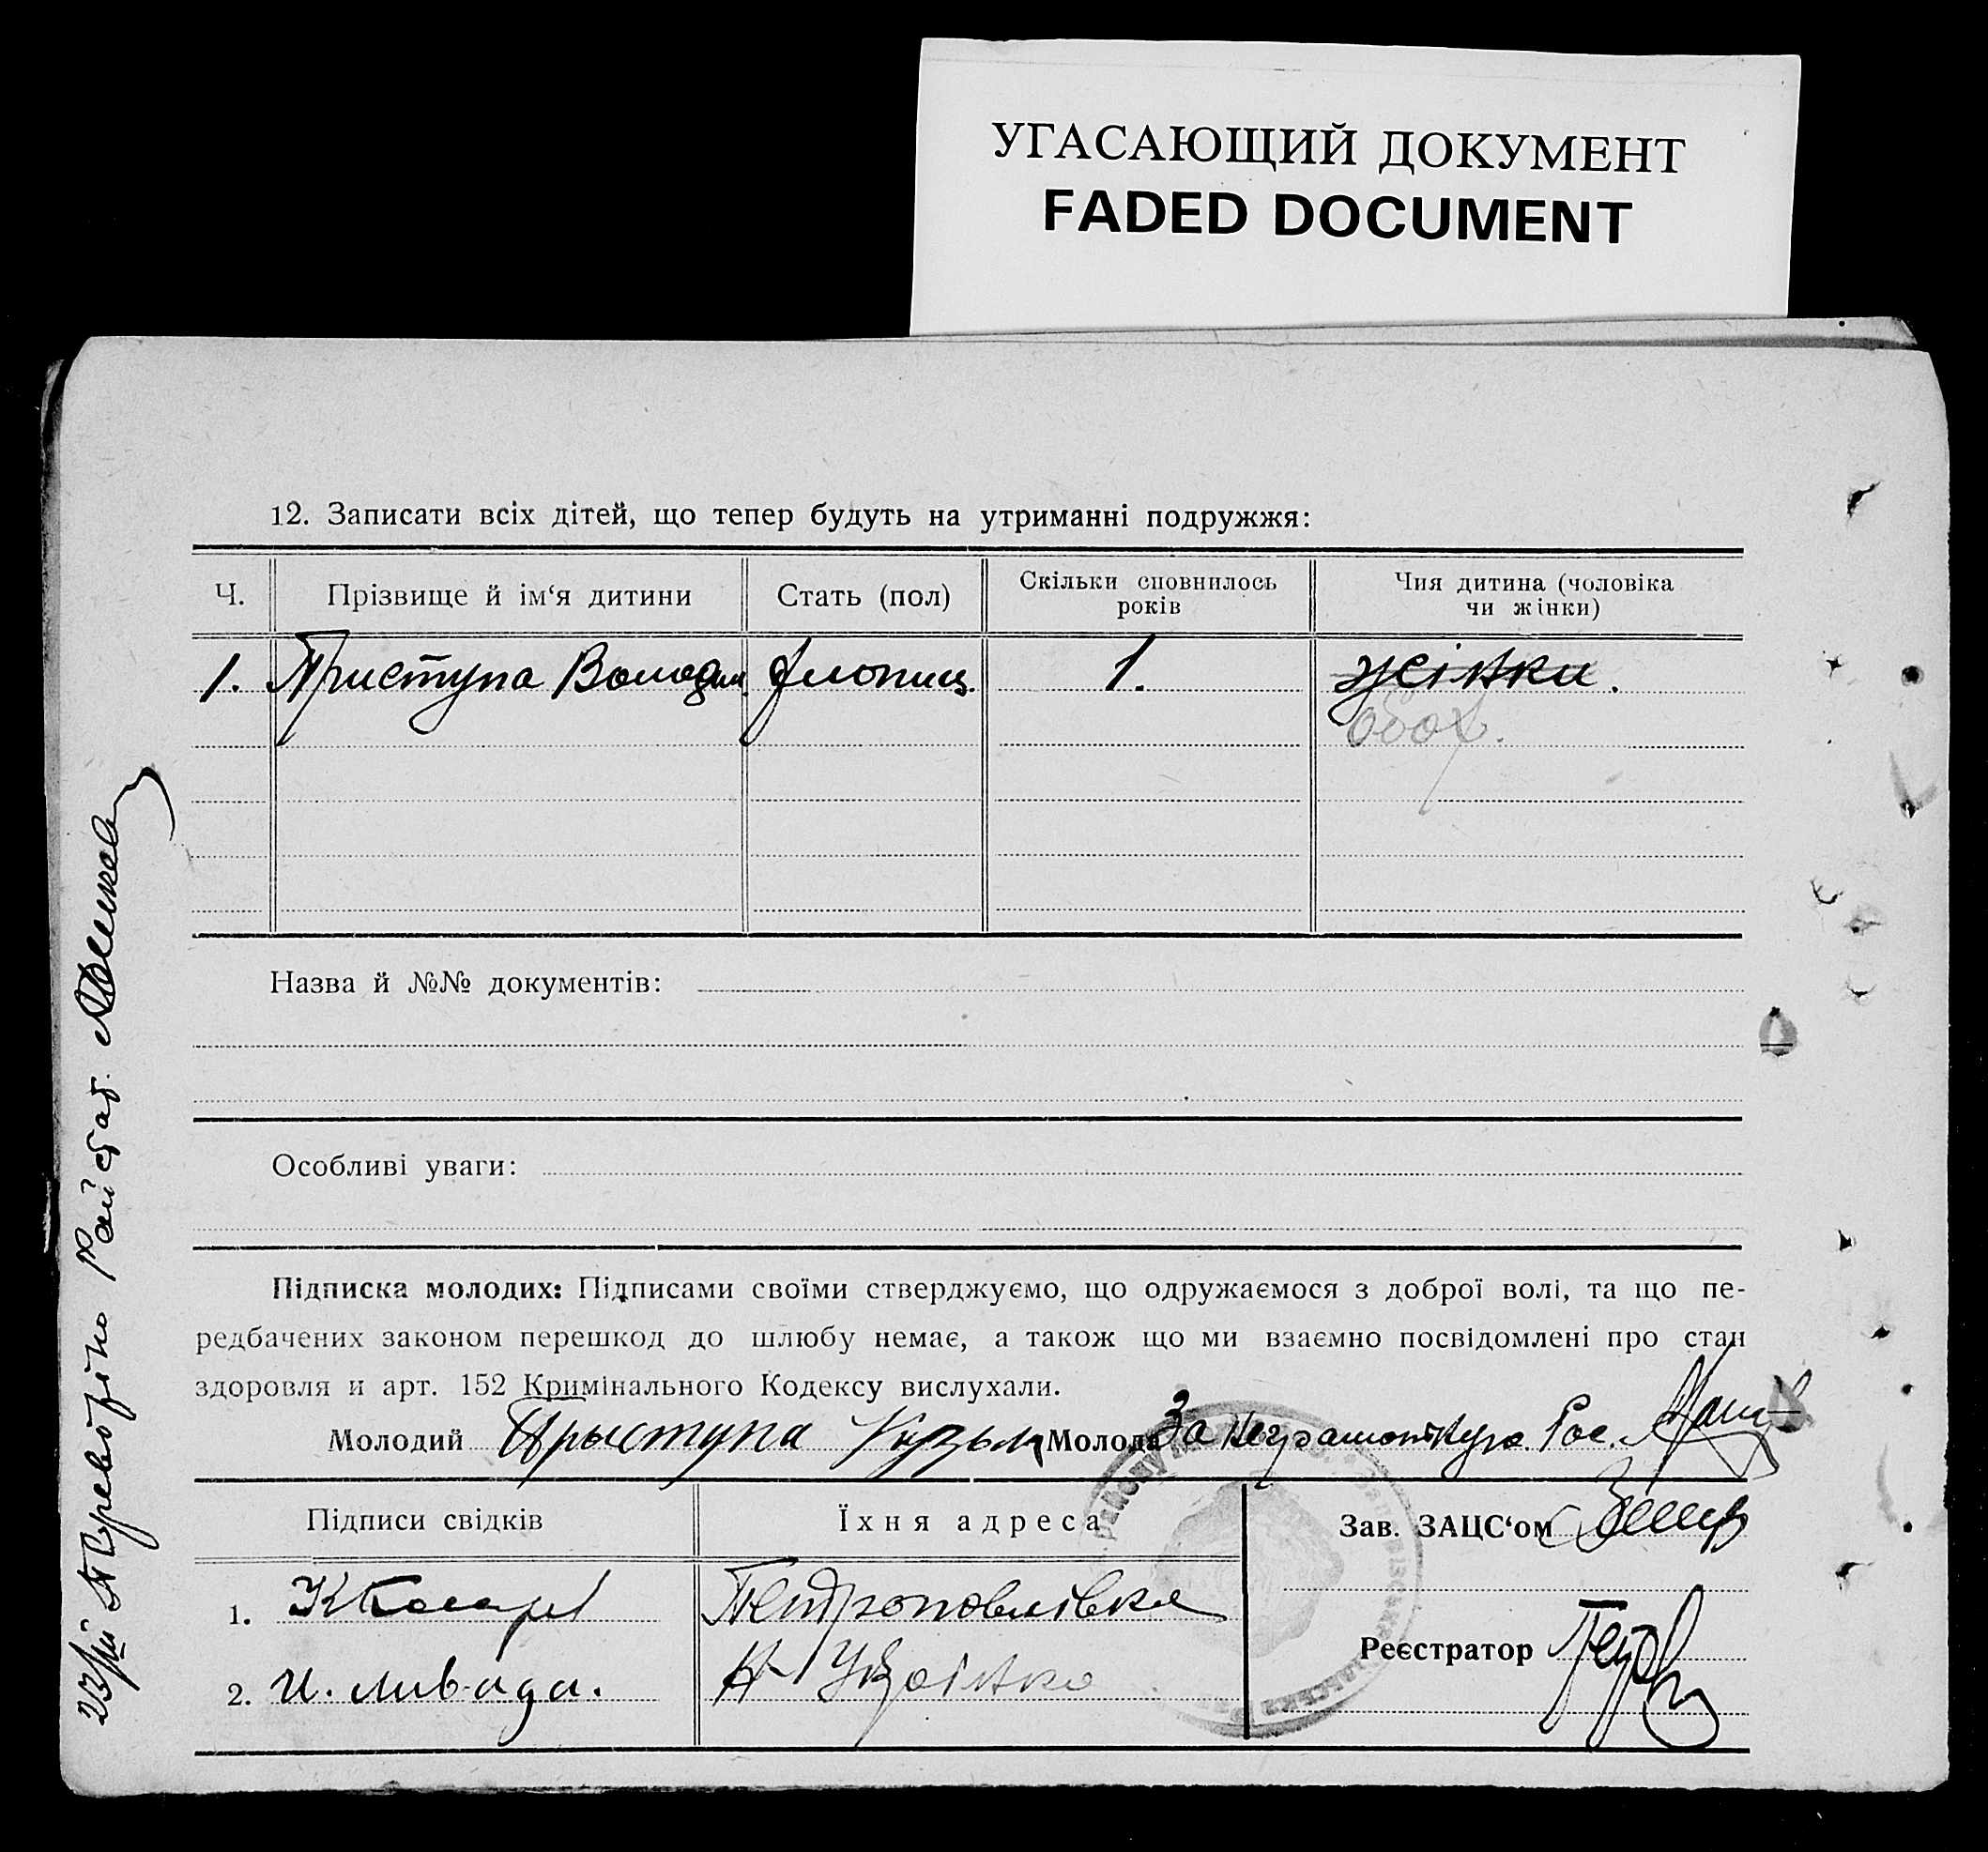 УГАСАЮЩИЙ ДОКУМЕНТ
FADED DOCUMENT
12. Записати всіх дітей, що тепер будуть на утриманні подружжя:
Ч. Прізвище й ім‘я дитини Стать (пол) Скільки сповнилось років Чия дитина (чоловіка чи жінки)
1. Приступа Володим. хлопиц. 1. жінки.
обох.
Назва й №№ документів:
Особливі уваги:
Підписка молодих: Підписами своїми стверджуємо, що одружаємося з доброї волі, та що пе-
редбачених законом перешкод до шлюбу немає, а також що ми взаємно посвідомлені про стан
здоровля и арт. 152 Кримінального Кодексу вислухали.
Молодий Прыступа Кузьма Молода За неграмотную Рос.
Підписи свідків Їхня адреса Зав. ЗАЦС‘ом
1. Петропавлівка
Реєстратор
2. И.Ливада.
Перевірено Райстат.